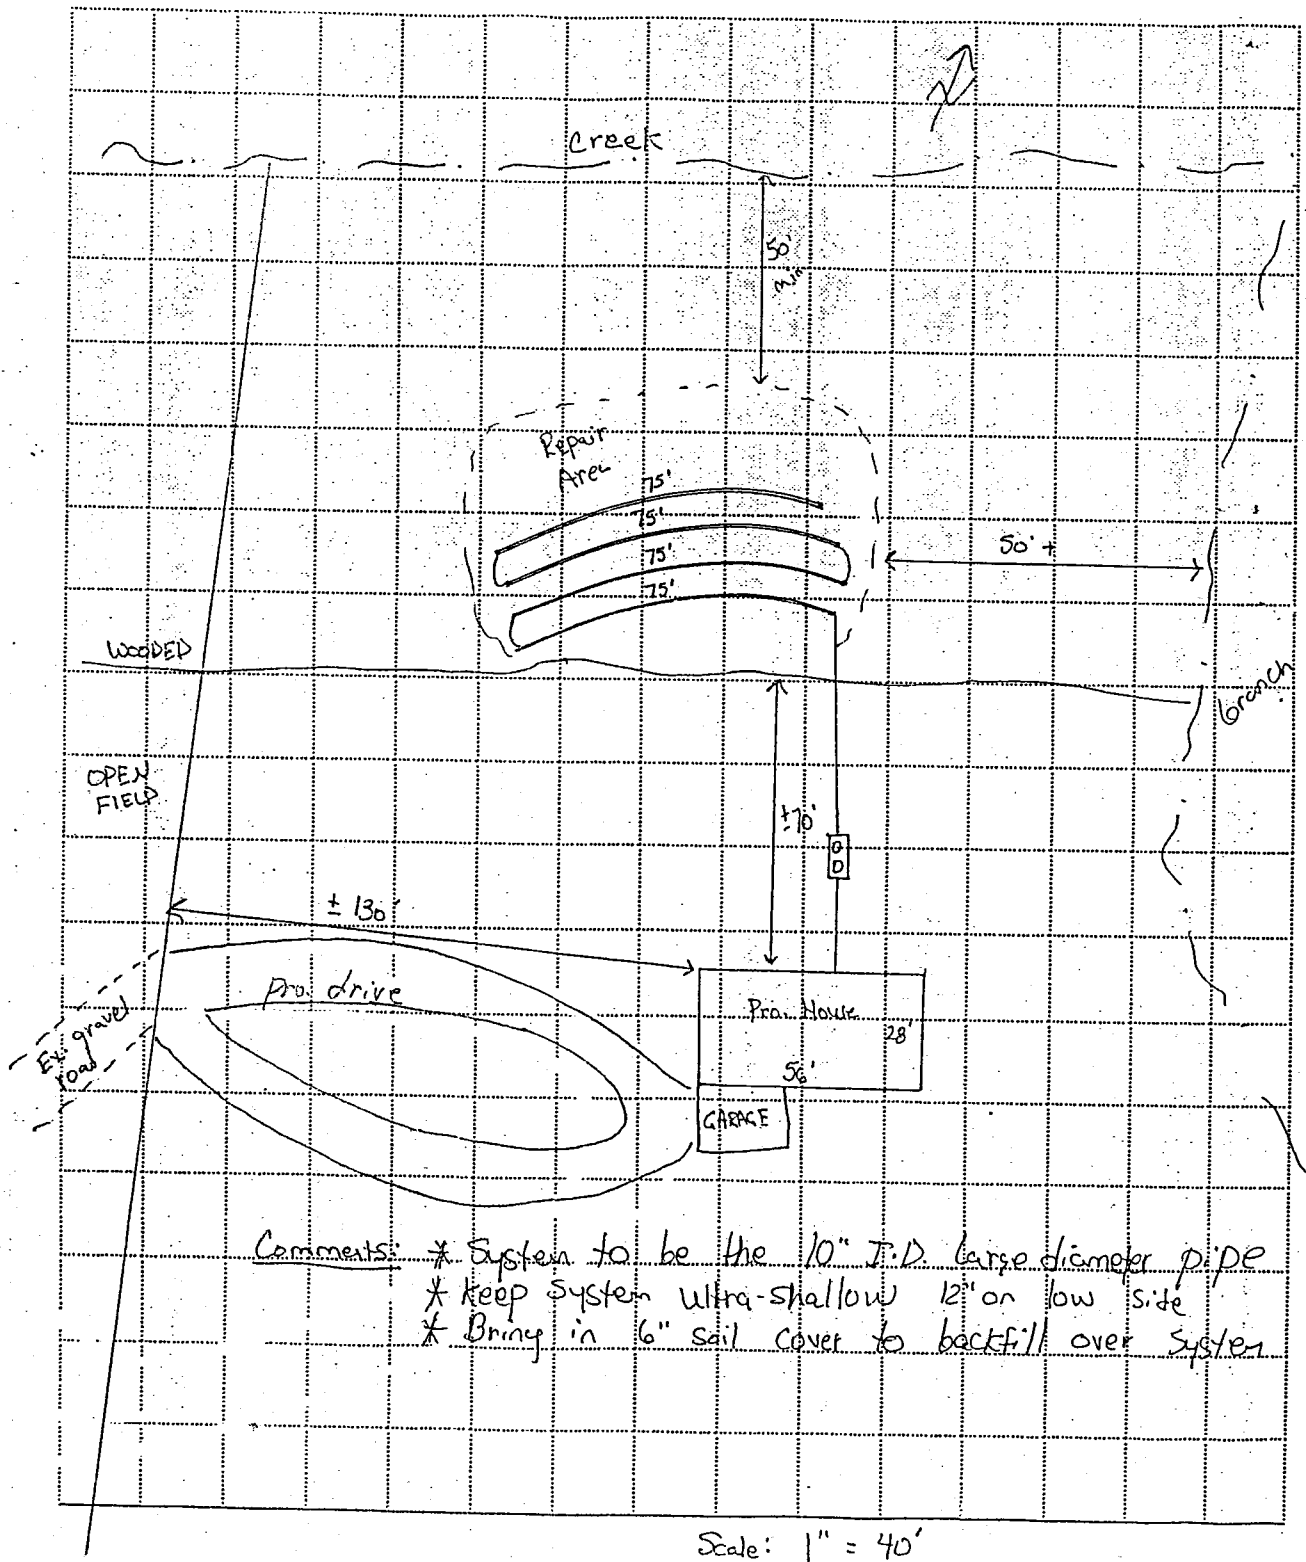 N
Creek
50'
min
Repair
Area
75'
75'
75'
75'
50' +
WOODED
branch
OPEN
FIELD
±70'
± 130'
pro. drive
Pro. House
28'
56'
Ex. gravel
road
GARAGE
Comments: * System to be the 10" I.D. large diameter pipe
* keep System ultra-shallow 12" on low side
* Bring in 6" soil cover to backfill over System
Scale: 1" = 40'